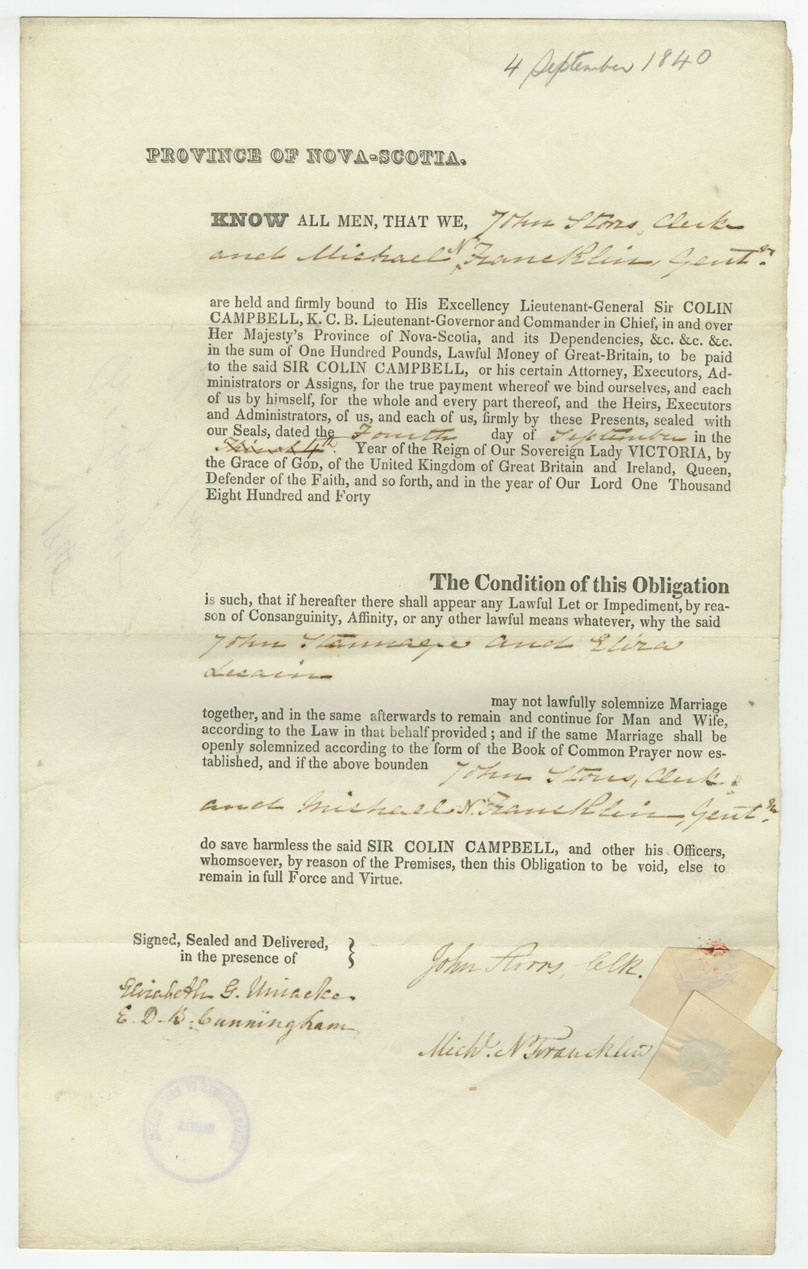 4 September 1840
PROVINCE OF NOVA-SCOTIA.
KNOW ALL MEN, THAT WE, John Storrs, Clerk
and Michael N. Francklin, Gentn.
are held and firmly bound to His Excellency Lieutenant-General Sir COLIN
CAMPBELL, K. C. B. Lieutenant-Governor and Commander in Chief, in and over
Her Majesty's Province of Nova-Scotia, and its Dependencies, &c. &c. &c.
in the sum of One Hundred Pounds, Lawful Money of Great-Britain, to be paid
to the said SIR COLIN CAMPBELL, or his certain Attorney, Executors, Ad-
ministrators or Assigns, for the true payment whereof we bind ourselves, and each
of us by himself, for the whole and every part thereof, and the Heirs, Executors
and Administrators, of us, and each of us, firmly by these Presents, sealed with
our Seals, dated the Fourth day of September in the
4th. Year of the Reign of Our Sovereign Lady VICTORIA, by
the Grace of GOD, of the United Kingdom of Great Britain and Ireland, Queen,
Defender of the Faith, and so forth, and in the year of Our Lord One Thousand
Eight Hundred and Forty
The Condition of this Obligation
is such, that if hereafter there shall appear any Lawful Let or Impediment, by rea-
son of Consanguinity, Affinity, or any other lawful means whatever, why the said
John Stannage and Eliza
Lesain
may not lawfully solemnize Marriage
together, and in the same afterwards to remain and continue for Man and Wife,
according to the Law in that behalf provided; and if the same Marriage shall be
openly solemnized according to the form of the Book of Common Prayer now es-
tablished, and if the above bounden John Storrs, Clerk
and Michael N. Francklin, Gentn.
do save harmless the said SIR COLIN CAMPBELL, and other his Officers,
whomsoever, by reason of the Premises, then this Obligation to be void, else to
remain in full Force and Virtue.
Signed, Sealed and Delivered,
in the presence of
John Storrs, Clk.
Elizabeth G. Uniacke.
E. D. B. Cunningham
Michl. N Francklin